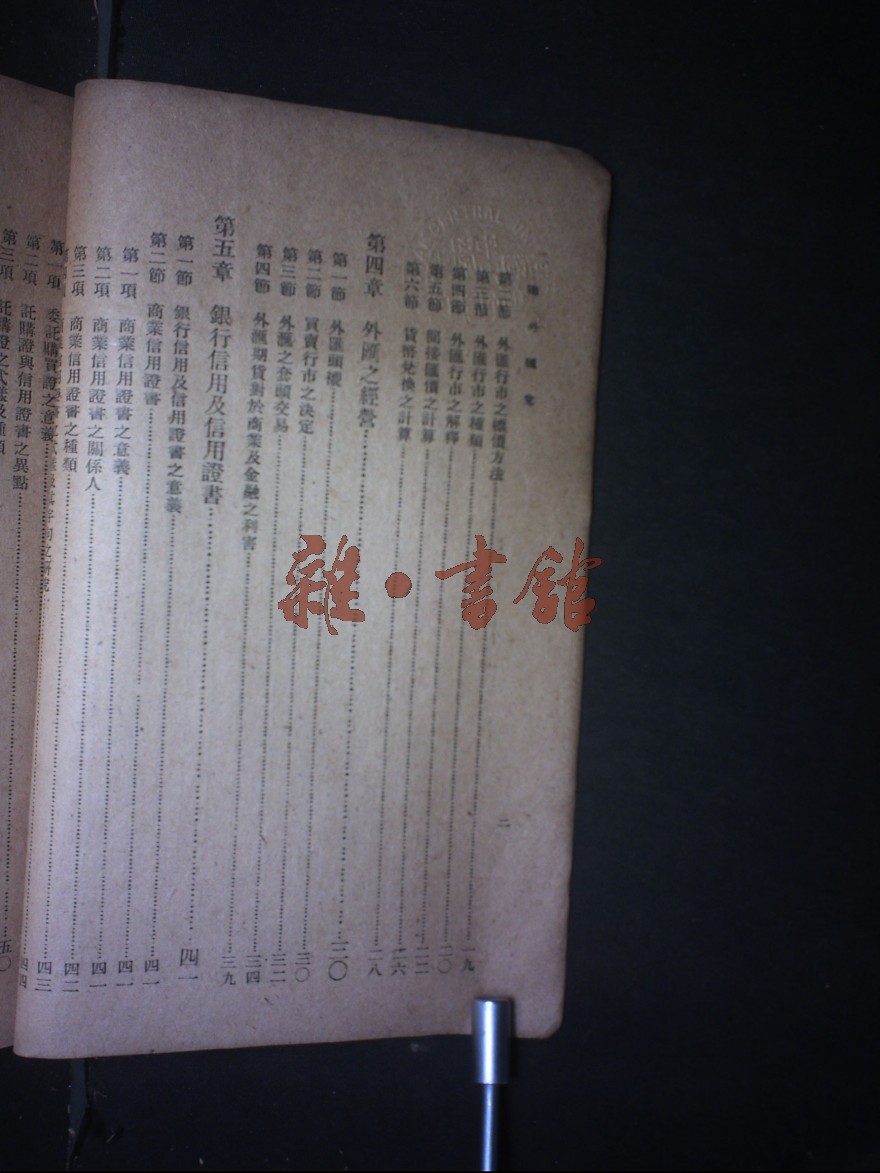 國外匯兌
二
第二節 外匯行市之標價方法 一九
第三節 外匯行市之種類 二〇
第四節 外匯行市之解釋 二二
第五節 間接匯價之計算 二六
第六節 貨幣兌換之計算 二八
第四章 外匯之經營 三〇
第一節 外匯頭襯 三〇
第二節 買賣行市之決定 三二
第三節 外匯之套頭交易 三四
第四節 外匯期貨對於商業及金融之利害 三九
第五章 銀行信用及信用證書 四一
第一節 銀行信用及信用證書之意義 四一
第二節 商業信用證書 四一
第一項 商業信用證書之意義 四一
第二項 商業信用證書之關係人 四二
第三項 商業信用證書之種類 四三
第一項 委託購買證之意義
第二項 託購證與信用證書之異點
第三項 託購證之式樣及種類 五〇
雜·書館
CENTRAL